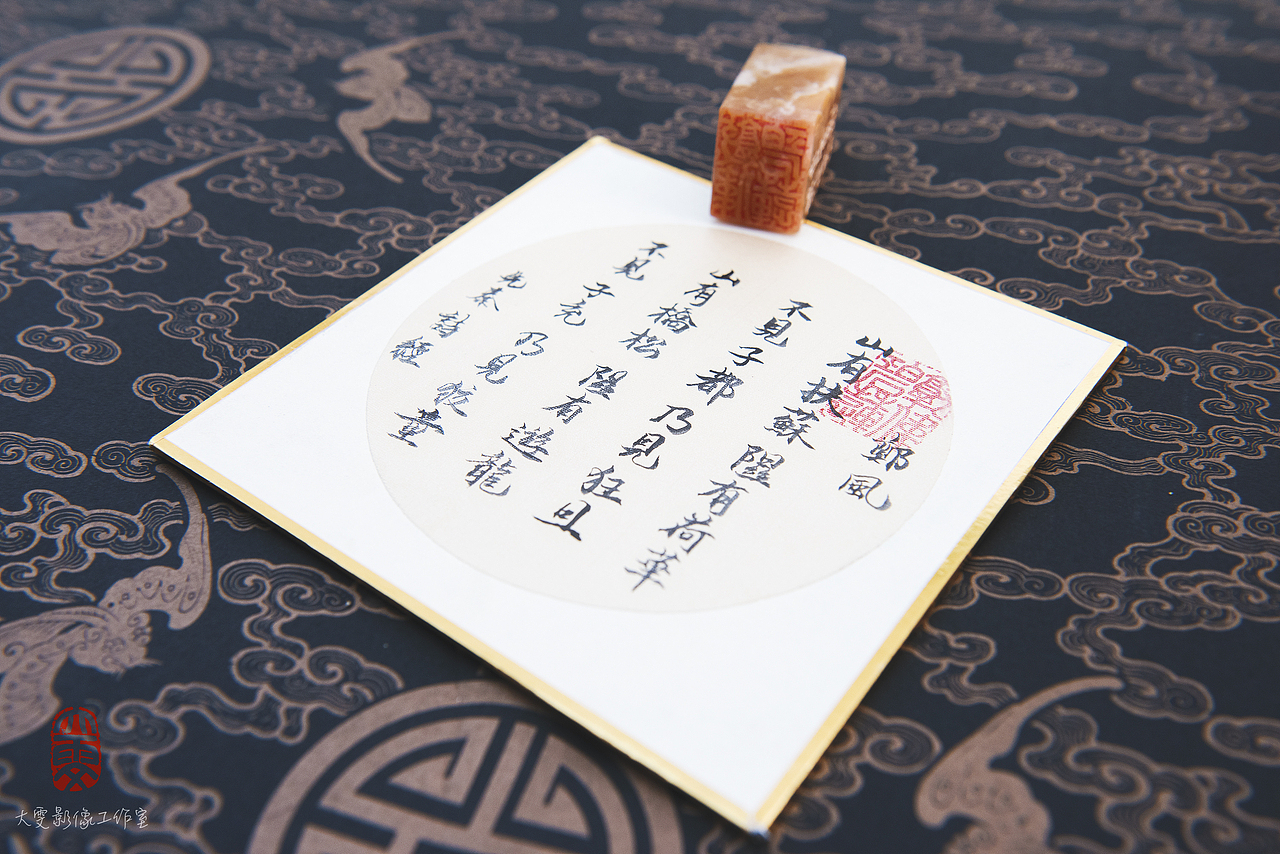 鄭風
山有扶蘇隰有荷華
不見子都乃見狂且
山有橋松隰有遊龍
不見子充乃見狡童
先秦詩經
大雯影像工作室